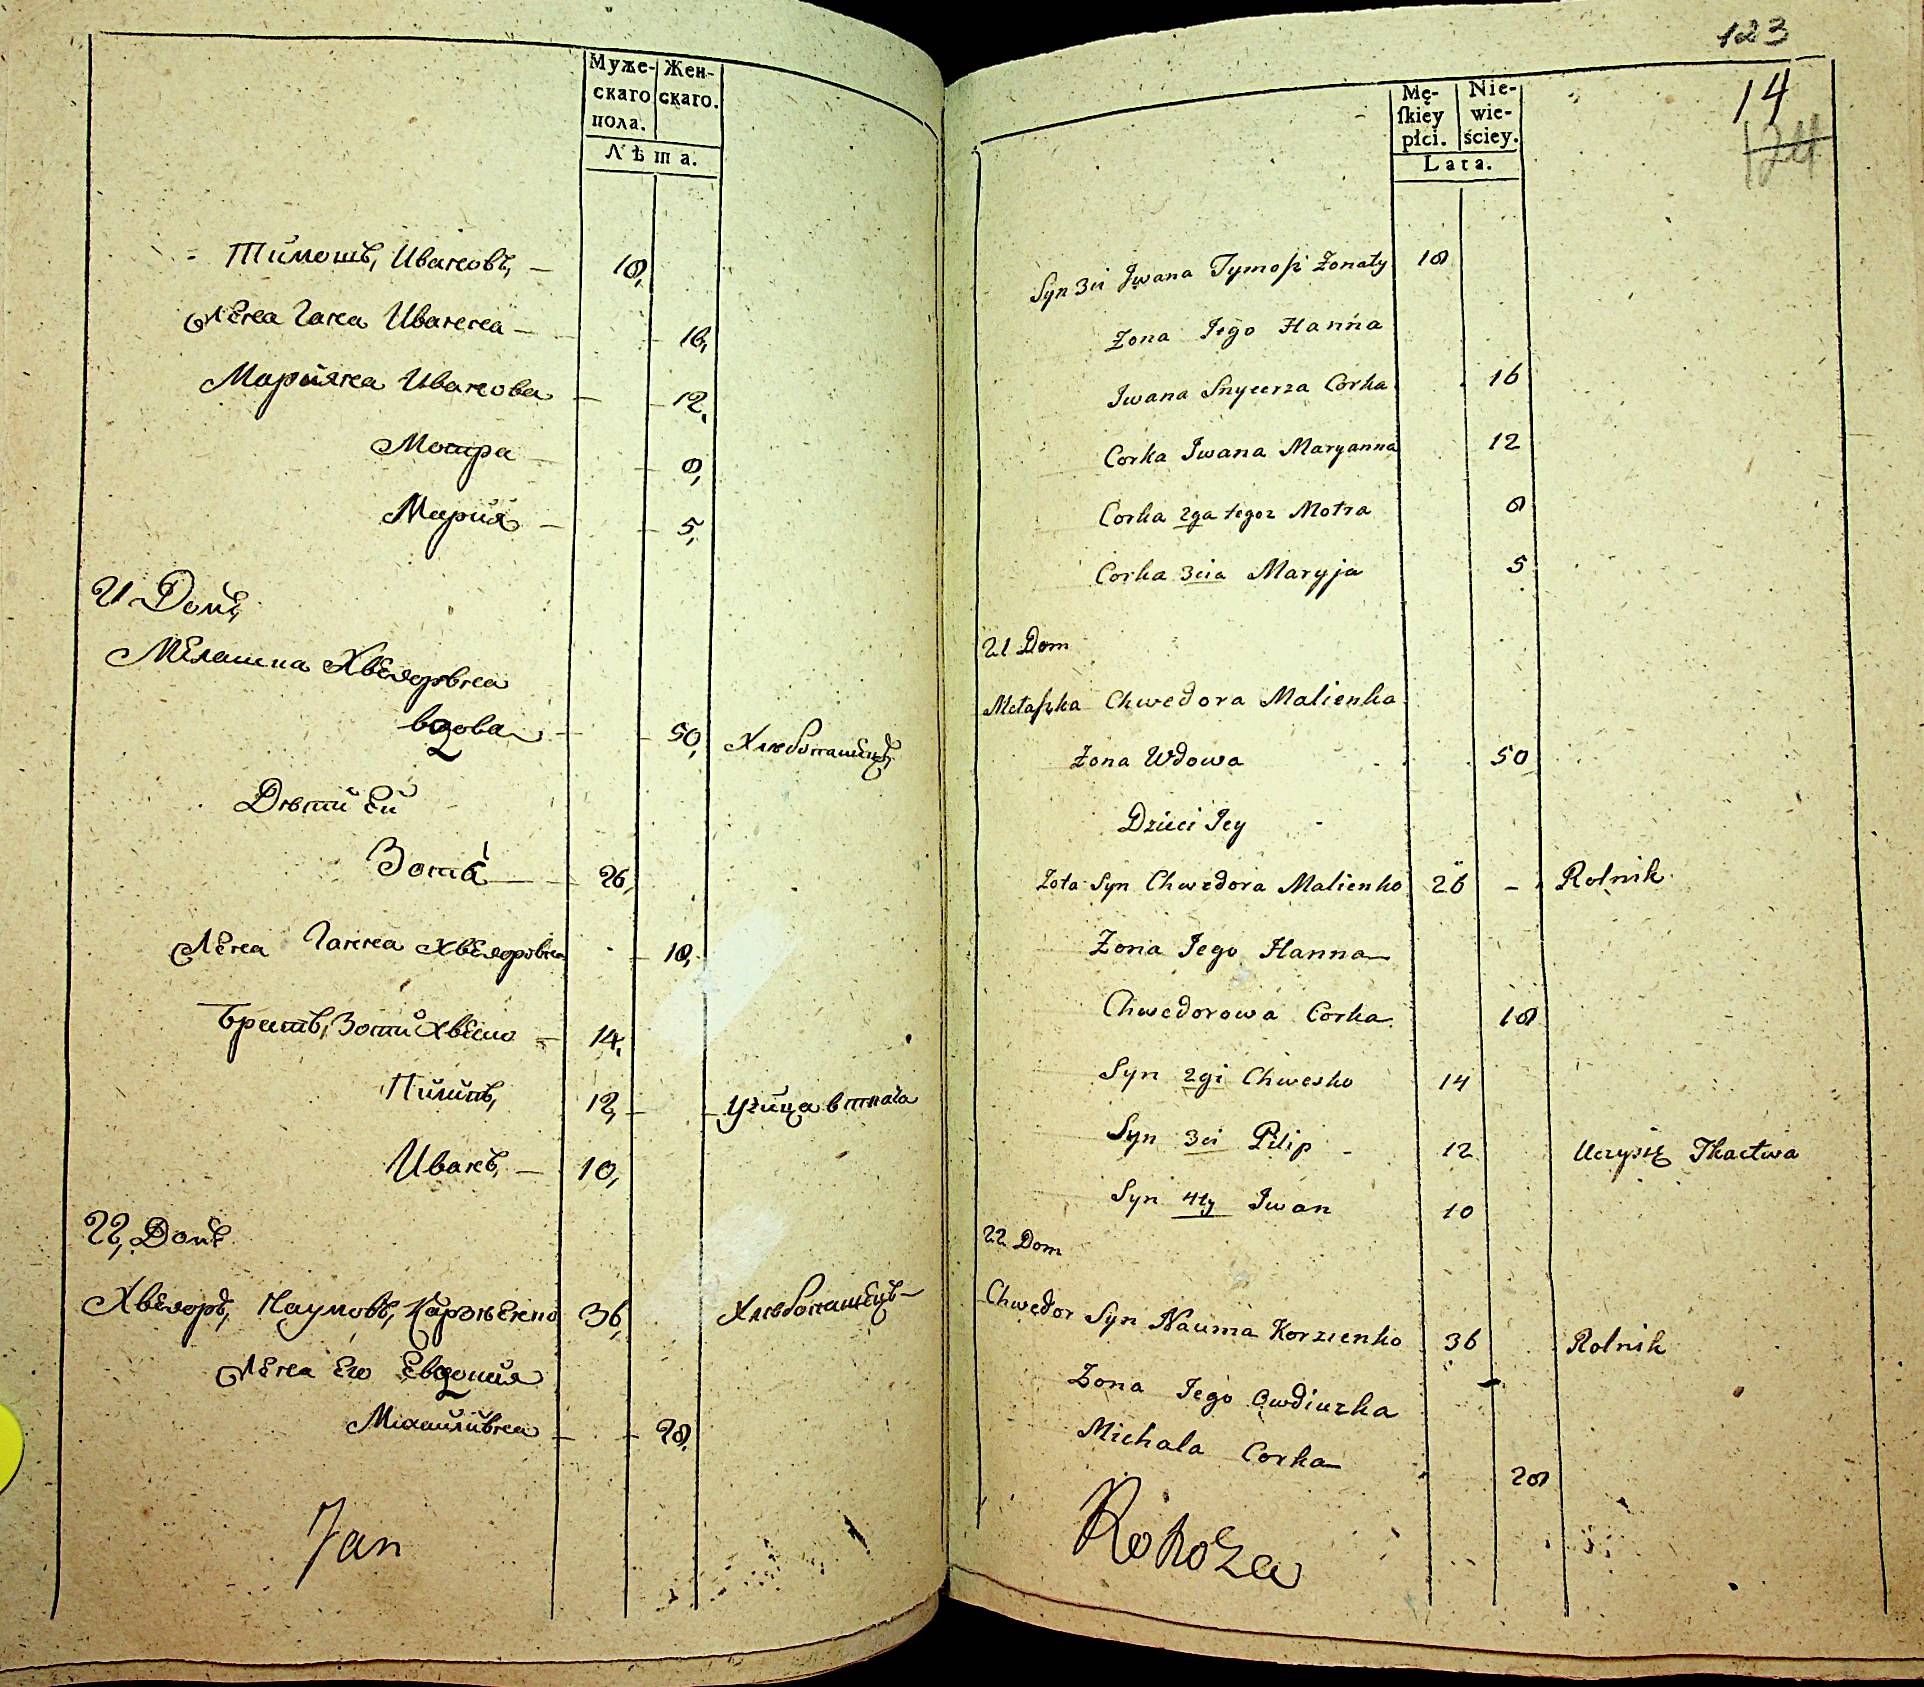 Муже-
скаго
пола.
Жен-
скаго.
Лѣта.
Тимошъ, Ивановъ, — 18,
Жена Гана Иванна — 16,
Марияна Иванова — 12,
Мотра — 8,
Мария — 5,
21 Домъ,
Мелашка Хведоровна
вдова — 50, Хлебопашецъ
Дѣти Ей
Зота — 26,
Жена Ганна Хведоровна 18,
Братъ, Зоти Хвеско — 14,
Пилипъ, 12, — учица в ткача
Иванъ, — 10,
22, Домъ
Хведоръ, Наумовъ, Карзѣенко 36, Хлебопашецъ —
Жена Его Евдокия
Михайливна — 28,
Jan
123
14
124
Mę-
skiey
płci.
Nie-
wie-
ściey.
Lata.
Syn 3ci Jwana Tymosz Żonaty 18
Żona Jego Hanna
Jwana Snycerza Corka 16
Corka Jwana Maryanna 12
Corka 2ga tegoz Motra 8
Corka 3cia Maryja 5
21 Dom
Mełaszka Chwedora Malienka
Żona Wdowa 50
Dzieci Jey
Zota Syn Chwedora Malienko 26 — Rolnik
Żona Jego Hanna —
Chwedorowa Corka 18
Syn 2gi Chwesko 14
Syn 3ci Pilip — 12 Uczysię Tkactwa
Syn 4ty Jwan 10
22 Dom
Chwedor Syn Nauma Korzienko 36 Rolnik
Żona Jego Owdiuszka
Michala Corka — 28
Rohoza